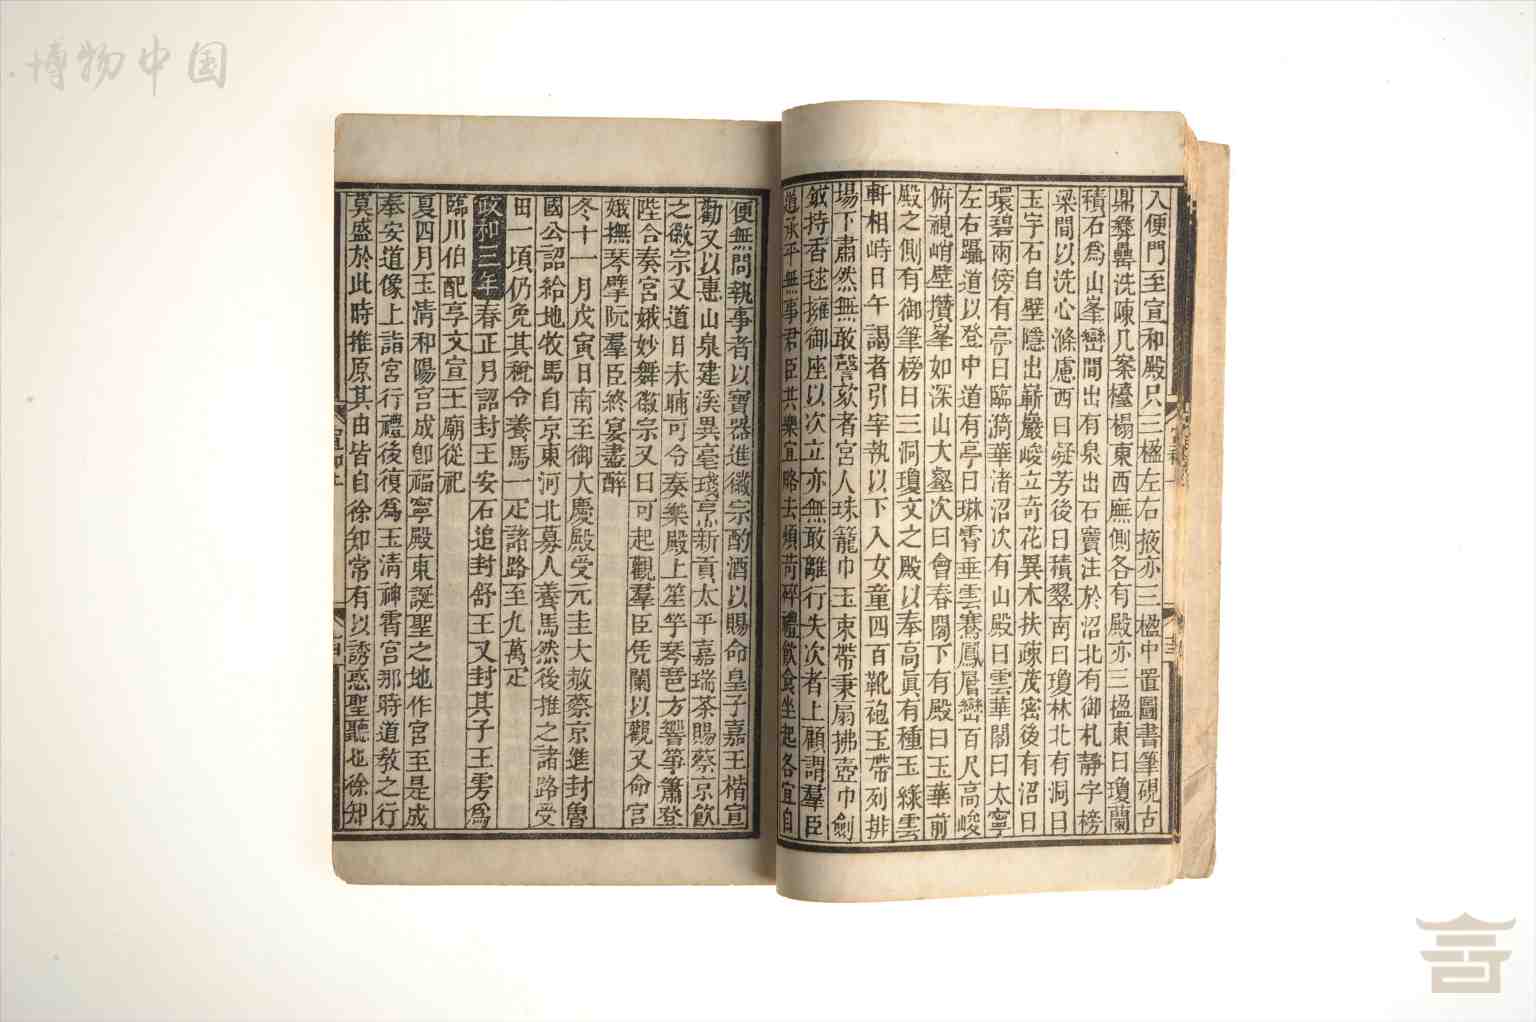 博物中国
入便門至宣和殿只三楹左右掖亦三楹中置圖書筆硯古
鼎彝罍洗陳几案檯榻東西廡側各有殿亦三楹東曰瓊蘭
積石爲山峯巒間出有泉出石竇注於沼北有御札靜字榜
梁間以洗心滌慮西曰凝芳後曰積翠南曰瓊林北有洞曰
玉宇石自壁隱出嶄巖峻立奇花異木扶疎茂密後有沼曰
環碧兩傍有亭曰臨漪華渚沼次有山殿曰雲華閣曰太寧
左右躡道以登中道有亭曰琳霄垂雲騫鳳層巒百尺高峻
俯視峭壁攢峯如深山大壑次曰會春閣下有殿曰玉華玉華前
殿之側有御筆榜曰三洞瓊文之殿以奉高眞有種玉緣雲
軒相峙日午謁者引宰執以下入女童四百靴袍玉帶列排
場下肅然無敢謦欬者宮人珠籠巾玉束帶秉扇拂壺巾劍
鈸持香毬擁御座以次立亦無敢離行失次者上顧謂羣臣
道承平無事君臣共樂宜略去煩苛碎禮飲食坐起各宜自
便無問執事者以寶器進徽宗酌酒以賜命皇子嘉王楷宣
勸又以惠山泉建溪異毫琖烹新貢太平嘉瑞茶賜蔡京飲
之徽宗又道日未晡可令奏樂殿上笙竽琴琶方響箏簫登
陛合奏宮娥妙舞徽宗又曰可起觀羣臣凭闌以觀又命宮
娥撫琴擘阮羣臣終宴盡醉
冬十一月戊寅日南至御大慶殿受元圭大赦蔡京進封魯
國公詔給地牧馬自京東河北募人養馬然後推之諸路受
田一頃仍免其稅令養馬一疋諸路至九萬疋
政和三年春正月詔封王安石追封舒王又封其子王雱爲
臨川伯配享文宣王廟從祀
夏四月玉清和陽宮成卽福寧殿東誕聖之地作宮至是成
奉安道像上詣宮行禮後復爲玉清神霄宮那時道教之行
莫盛於此時推原其由皆自徐知常有以誘惑聖聽也徐知